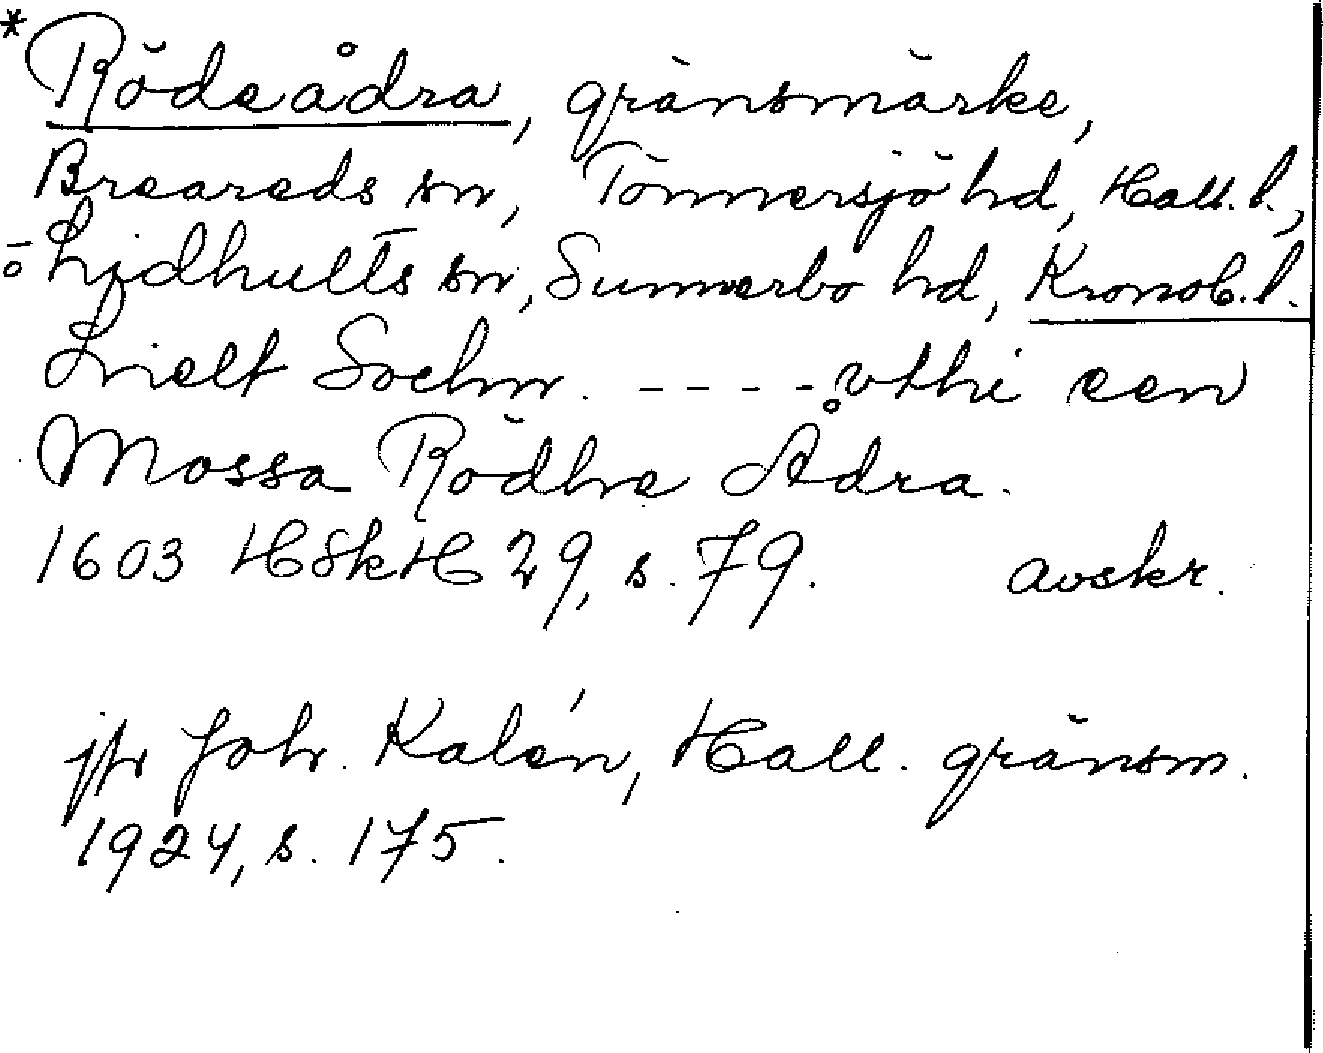 *Rödeådra, gränsmärke,
Breareds sn, Tönnersjö hd, Hall. l.,
Lidhults sn, Sunnerbo hd, Kronob. l.
---- vthi een
Mossa Rödhe Ådra.
1603 HSkH 29, s. 79. avskr.
jfr Joh. Kalén, Hall. gränsm.
1924, s. 175.